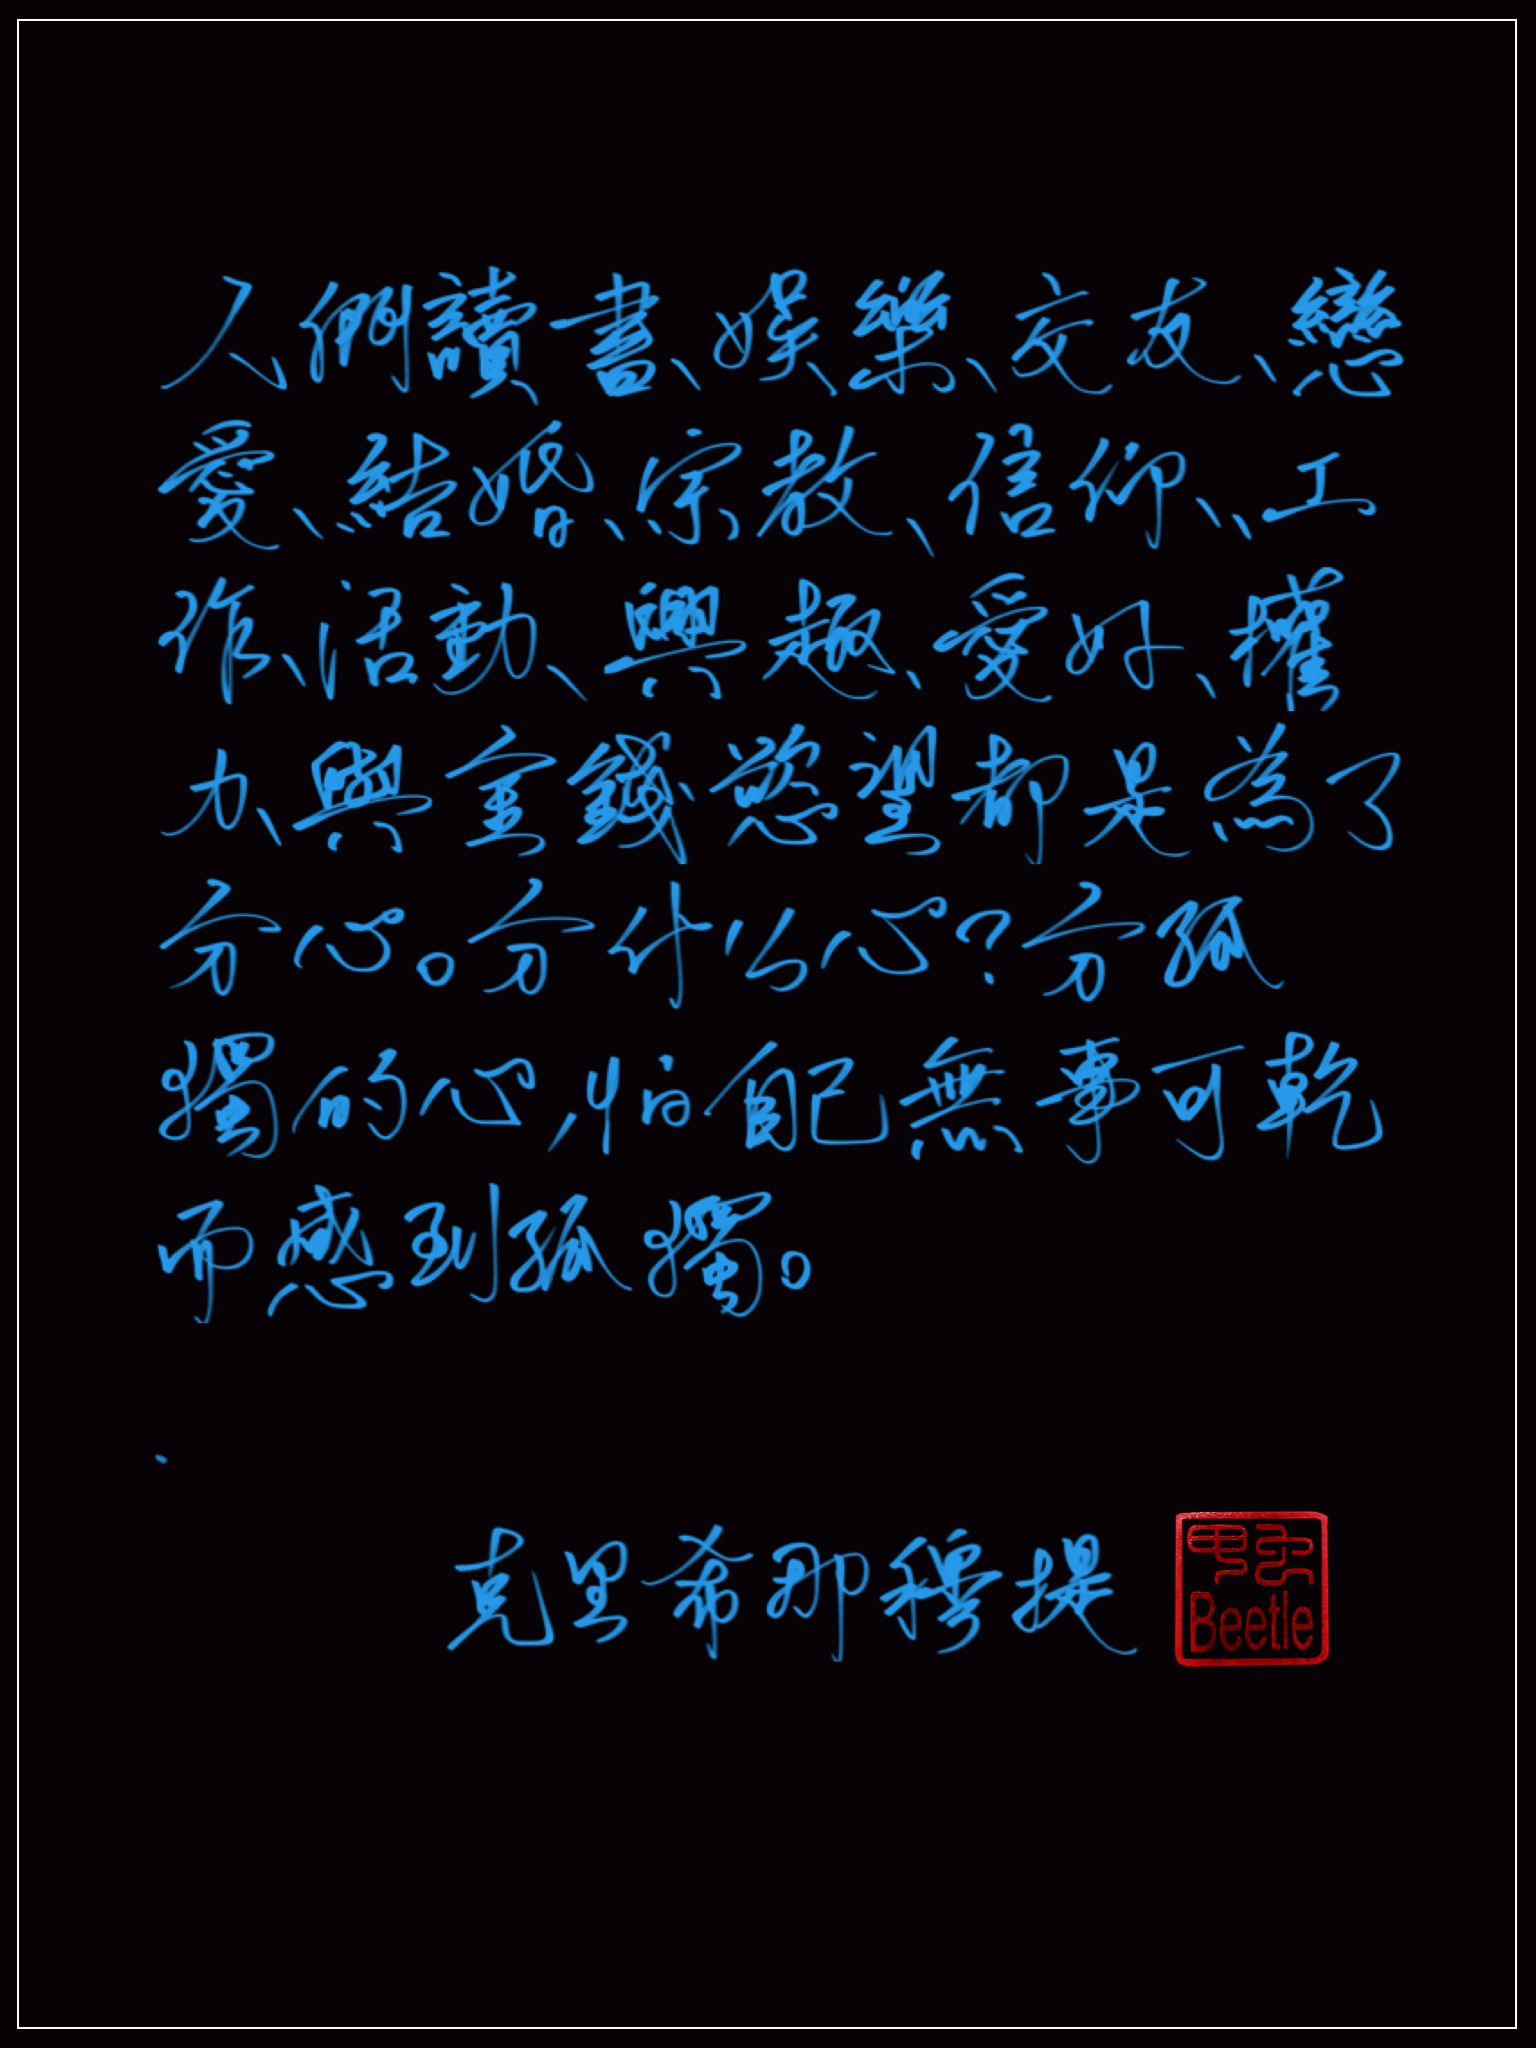 人們讀書、娛樂、交友、戀
愛、結婚、宗教、信仰、、工
作、活動、興趣、愛好、權
力、與金錢慾望都是為了
分心。分什么心?分孤
獨的心,怕自己無事可乾
而感到孤獨。
克里希那穆提
Beetle